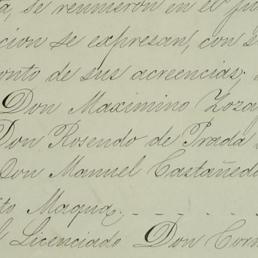 a, se reunieron en el Ju
cion se expresan, con s
onto de sus acreencias.
Don Maximino Loza
Don Rosendo de Prada
Don Manuel Castañeda
ito Maqua. - - - - -
l Licenciado Don Corn